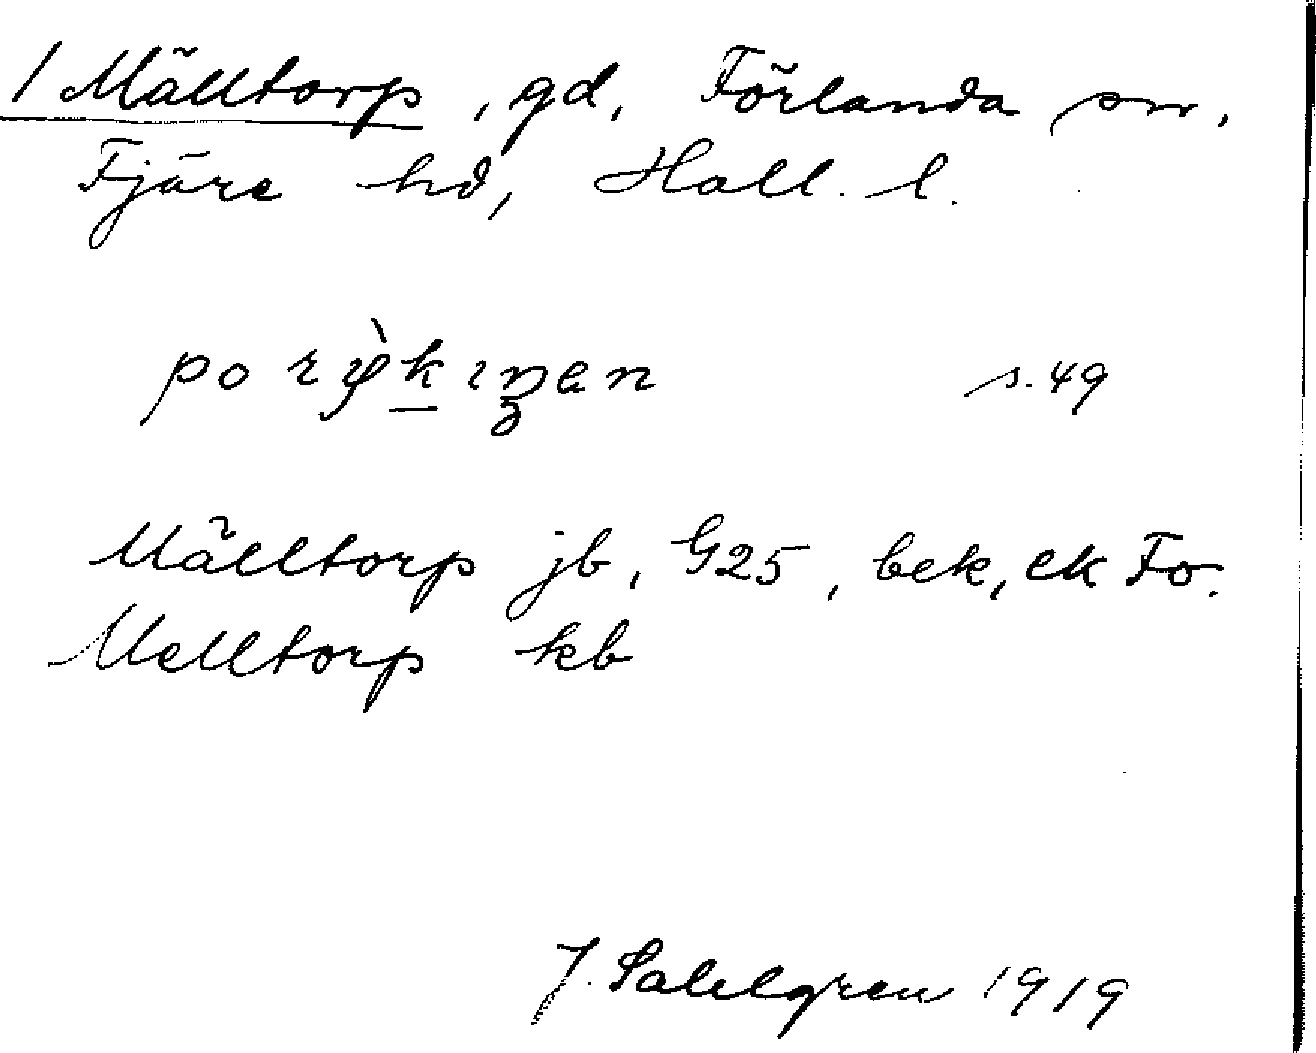 1 Mälltorp, gd, Förlanda sn.
Fjäre hd, Hall. l.
s. 49
Mälltorp jb, G25, bek, ek Fo.
Melltorp kb
J. Sahlgren 1919